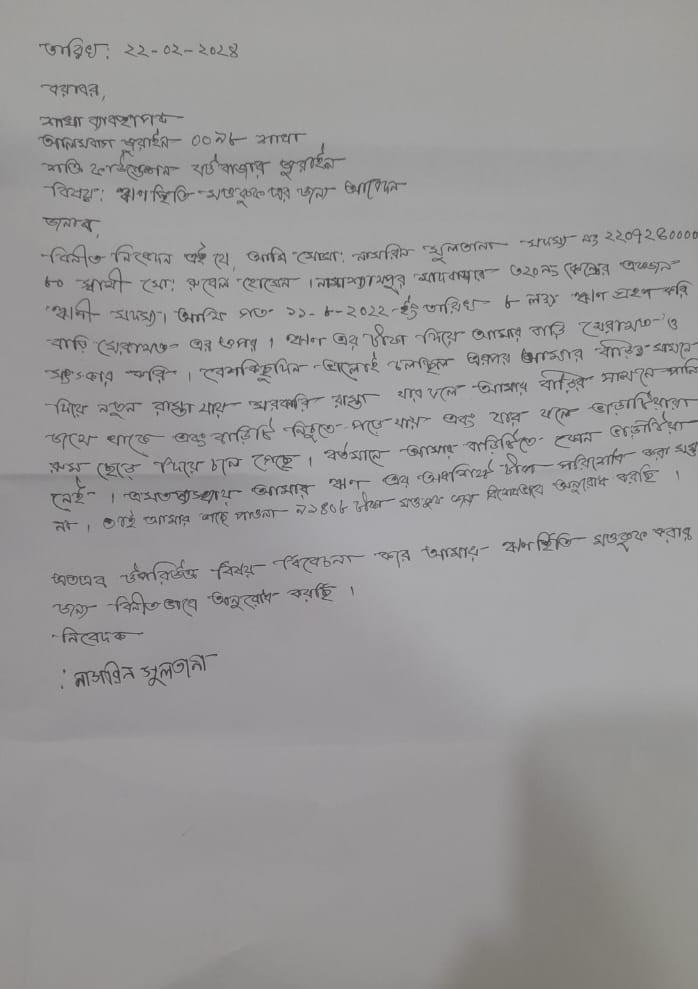 তারিখ: ২২-০২-২০২৪
বরাবর,
শাখা ব্যবস্থাপক
জুরাইন ০০৭৮ শাখা
শক্তি ফাউন্ডেশন জুরাইন
বিষয়: ঋণস্থিতি মওকুফ এর জন্য আবেদন
জনাব,
বিনীত নিবেদন এই যে, আমি মোছা: নাসরিন সুলতানা সদস্য নং ২২০৭২৪০০০০
৮০ স্বামী মো: রুবেল হোসেন । ৩২০নং কেন্দ্রের একজন
ঋণী সদস্য। আমি গত ১১-৮-২০২২ ইং তারিখ ৮ লক্ষ্য ঋণ গ্রহণ করি
বাড়ি মেরামত এর উপর । ঋণ এর টাকা দিয়ে আমার বাড়ি মেরামত ও
সংস্কার করি । বেশকিছুদিন ভালোই চলছিল এরপর আমার বাড়ির সামনে
দিয়ে নতুন রাস্তা যায় সরকারি রাস্তা যার ফলে আমার বাড়ির সামনে পানি
জমে থাকে এবং বাড়িটি নিচুতে পড়ে যায় এবং যার ফলে ভাড়াটিয়ারা
রুম ছেড়ে দিয়ে চলে গেছে । বর্তমানে আমার বাড়িটিতে কোন ভাড়াটিয়া
নেই । এমতাবস্থায় আমার ঋণ এর অবশিষ্ট টাকা পরিশোধ করা সম্ভ
না । তাই আমার কাছে পাওনা ৭১৪০৮ টাকা মওকুফ বিশেষভাবে অনুরোধ করছি ।
অতএব উপরিউক্ত বিষয় বিবেচনা করে আমার ঋণস্থিতি মওকুফ করার
জন্য বিনীতভাবে অনুরোধ করছি ।
নিবেদক
: নাসরিন সুলতানা